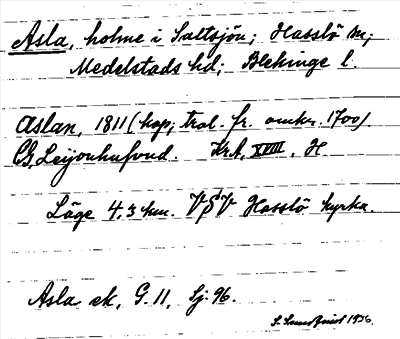 Asla, holme i Saltsjön; Hasslö sn;
Medelstads hd; Blekinge l.
Aslan, 1811 (kop; trol. fr. omkr. 1700).
CG, Leijonhufvud. Kr.A, XVIII, H
Läge 4,3 km. VSV Hasslö kyrka.
Asla ek, G. 11, Sj. 96.
S. Sundqvist 1936.